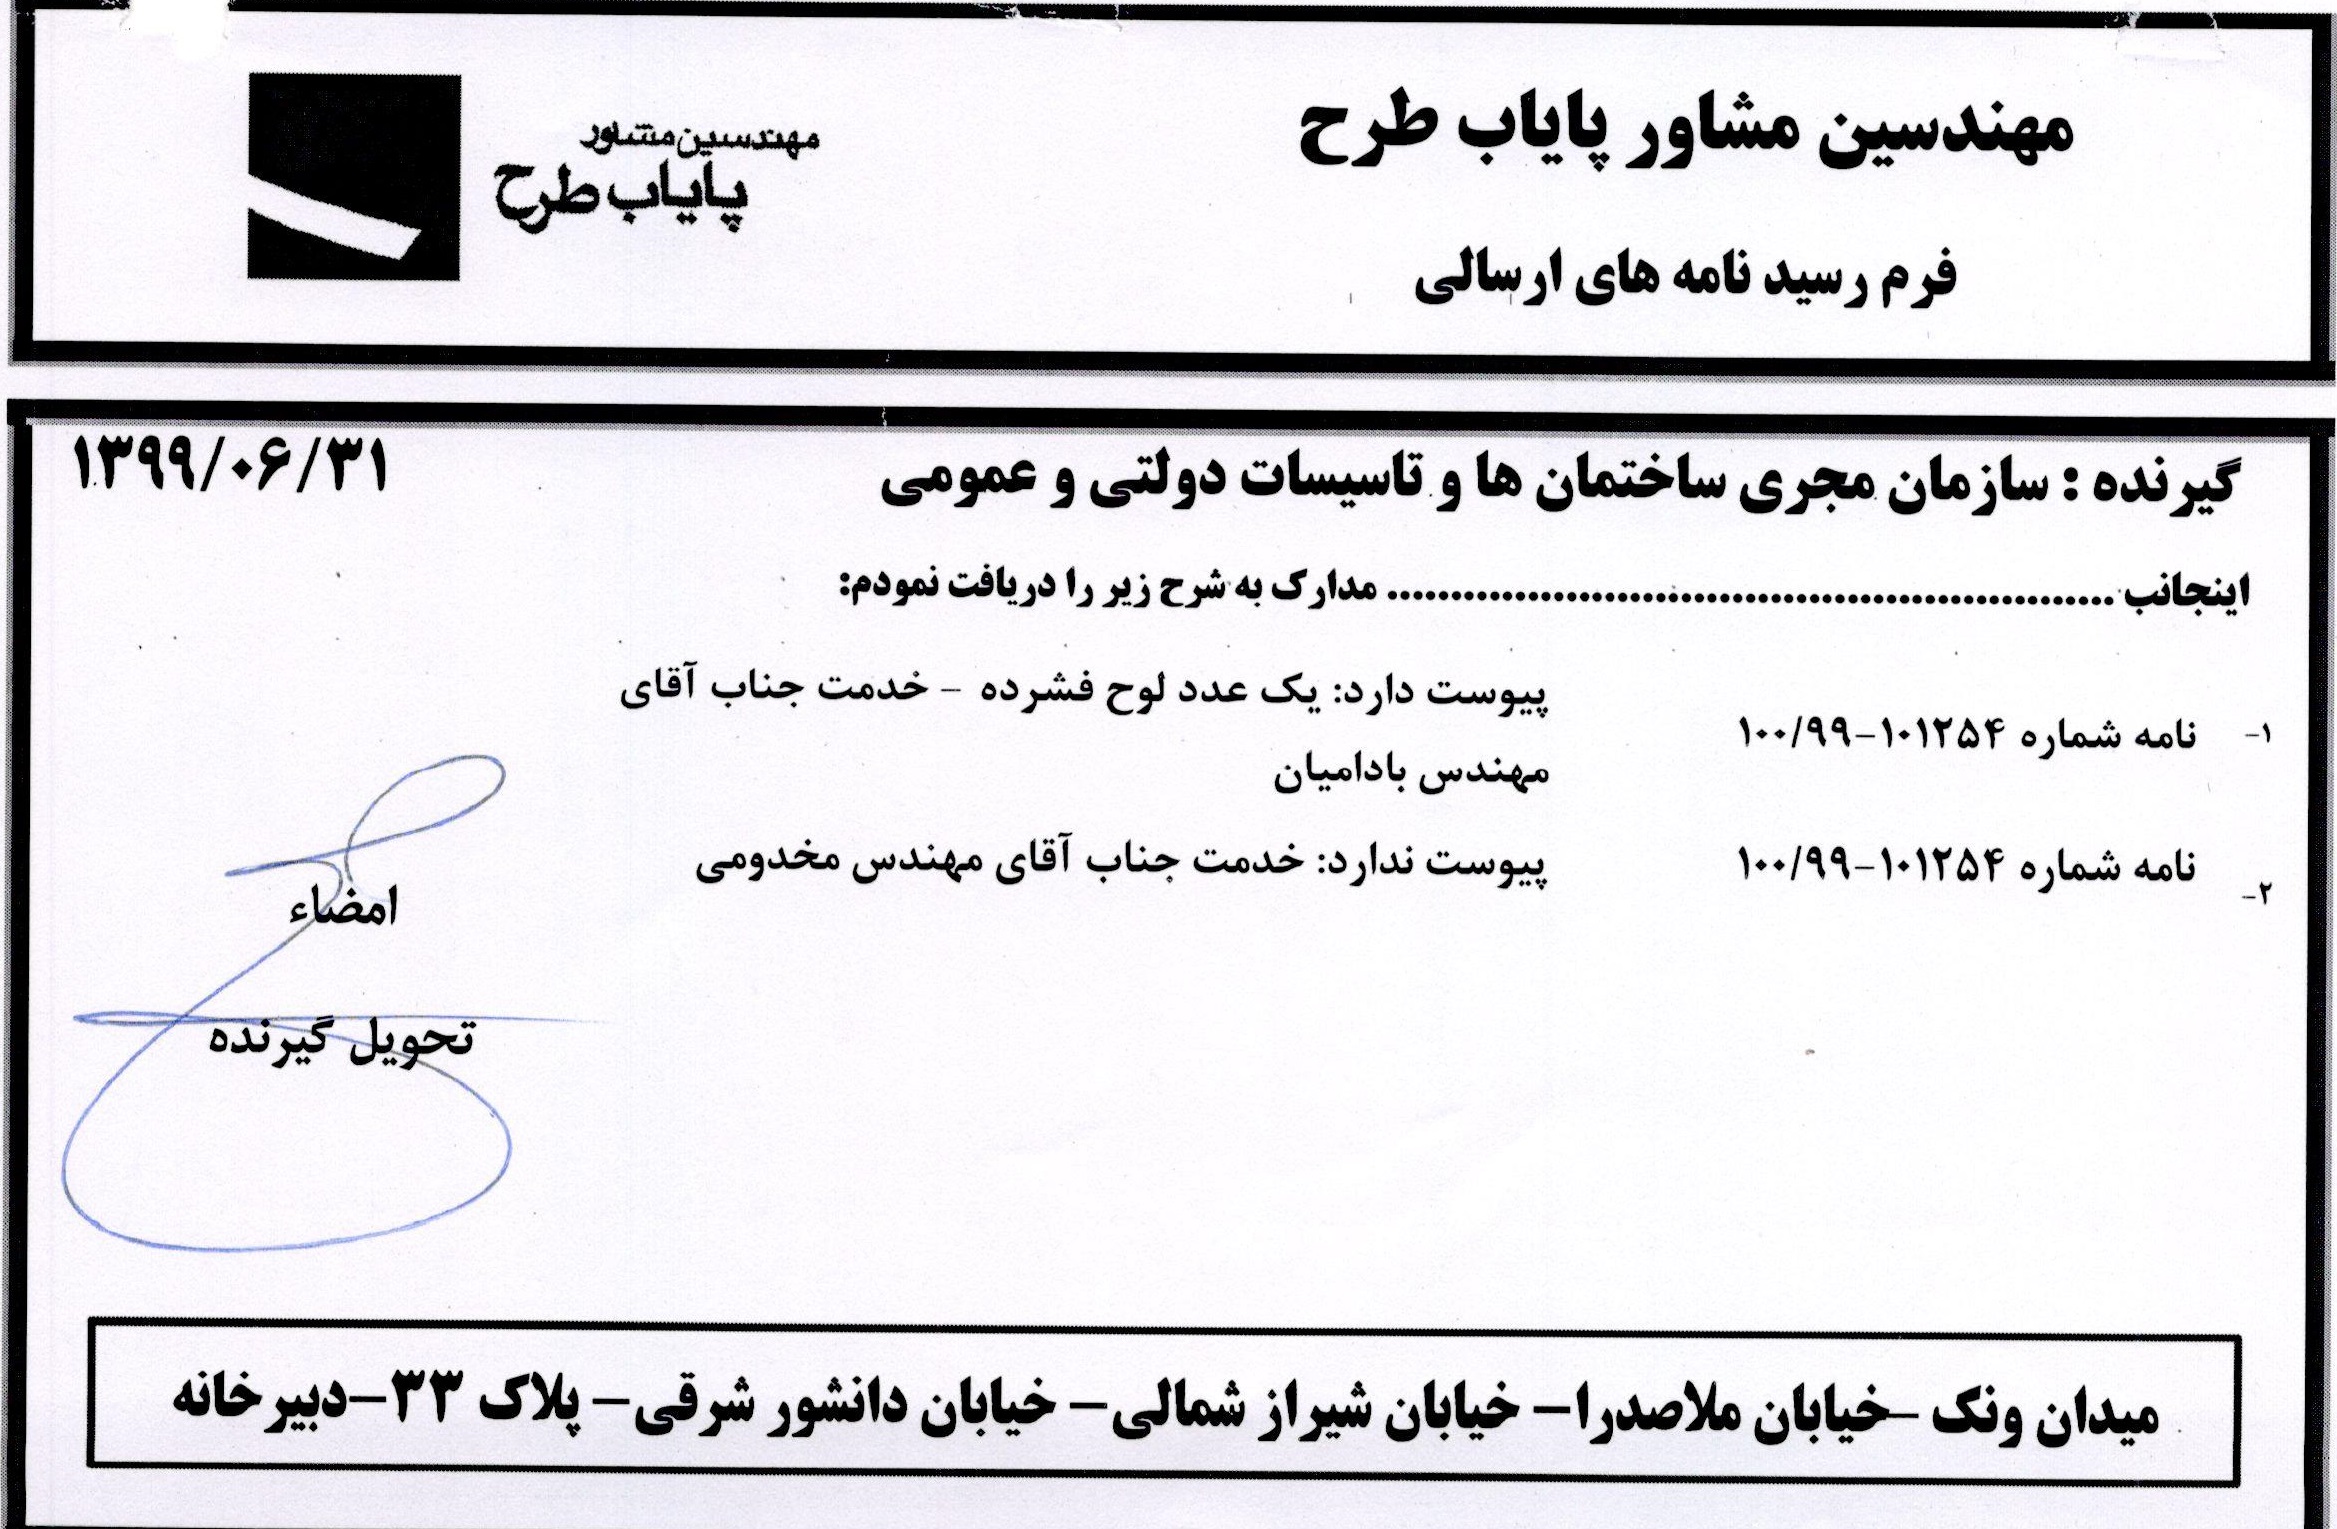 مهندسین مشاور پایاب طرح
مهندسین مشاور
پایاب طرح
فرم رسید نامه های ارسالی
گیرنده : سازمان مجری ساختمان ها و تاسیسات دولتی و عمومی
۱۳۹۹/۰۶/۳۱
اینجانب ......................................................... مدارک به شرح زیر را دریافت نمودم:
۱- نامه شماره ۱۰۰/۹۹-۱۰۱۲۵۴
پیوست دارد: یک عدد لوح فشرده - خدمت جناب آقای
مهندس بادامیان
۲- نامه شماره ۱۰۰/۹۹-۱۰۱۲۵۴
پیوست ندارد: خدمت جناب آقای مهندس مخدومی
امضاء
تحویل گیرنده
میدان ونک -خیابان ملاصدرا- خیابان شیراز شمالی- خیابان دانشور شرقی- پلاک ۳۳-دبیرخانه